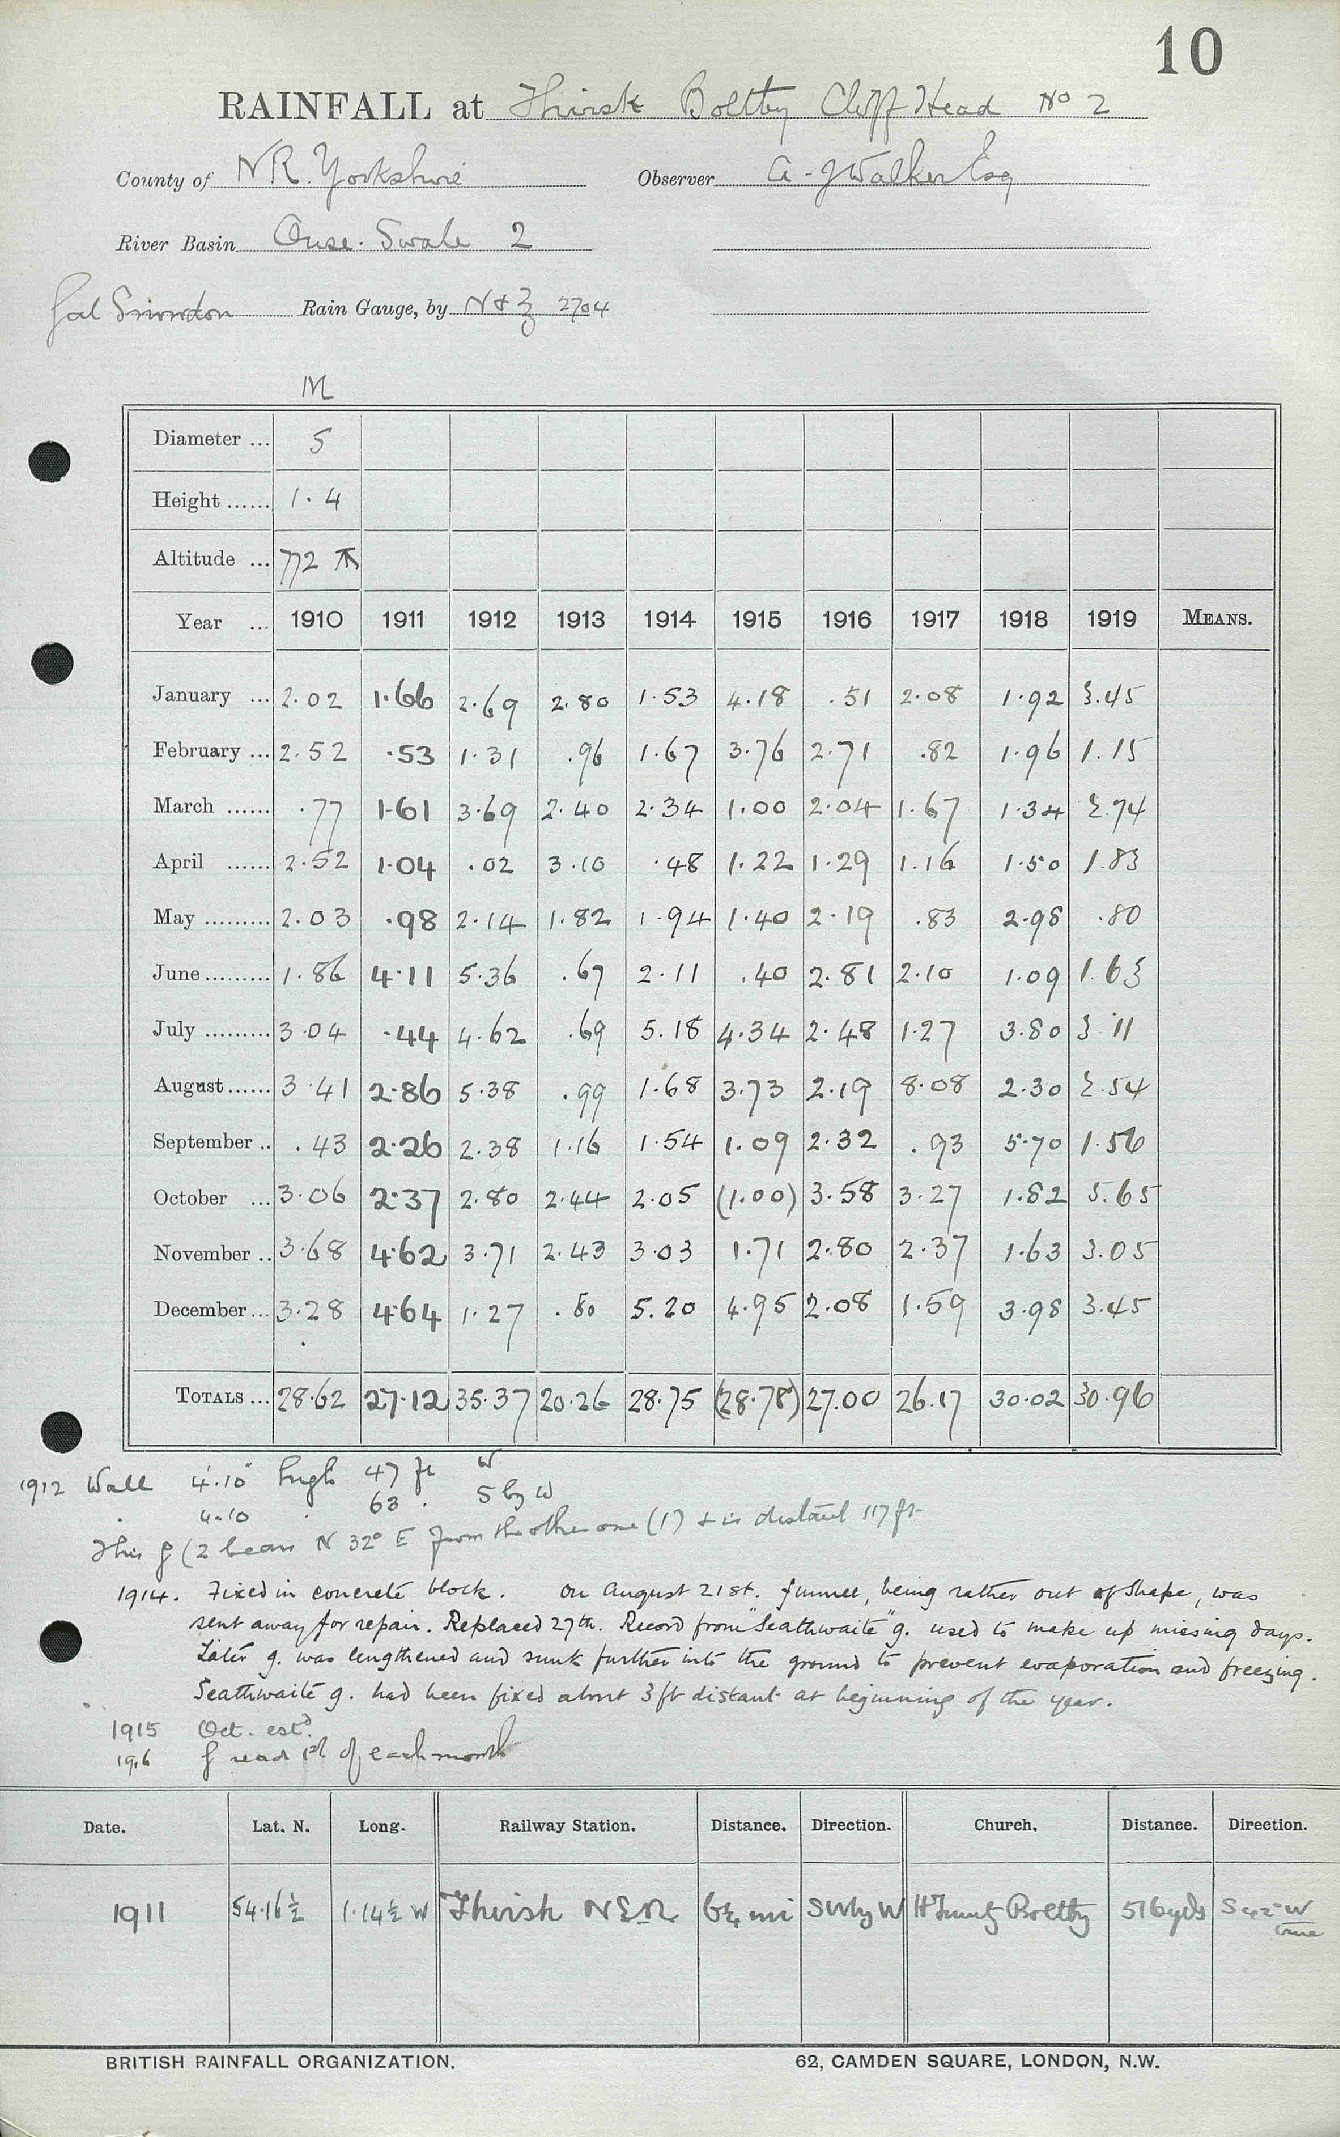 10
RAINFALL at Thirsk Boltby Cliff Head No 2
County of N.R. Yorkshire Observer A. J Walker Esq
River Basin Ouse. Swale 2
Gal Snowdon Rain Gauge, by N & Z 2704
M
Diameter ... 5
Height ...... 1.4
Altitude ... 772
Year ... 1910 1911 1912 1913 1914 1915 1916 1917 1918 1919 MEANS.
January ... 2.02 1.66 2.69 2.80 1.53 4.18 .51 2.08 1.92 3.45
February ... 2.52 .53 1.31 .96 1.67 3.76 2.71 .82 1.96 1.15
March ...... .77 1.61 3.69 2.40 2.34 1.00 2.04 1.67 1.34 2.74
April ...... 2.52 1.04 .02 3.10 .48 1.22 1.29 1.16 1.50 1.83
May ......... 2.03 .98 2.14 1.82 1.94 1.40 2.19 .83 2.98 .80
June ......... 1.86 4.11 5.36 .67 2.11 .40 2.81 2.10 1.09 1.63
July ......... 3.04 .44 4.62 .69 5.18 4.34 2.48 1.27 3.80 3.11
August ...... 3.41 2.86 5.38 .99 1.68 3.73 2.19 8.08 2.30 2.54
September .. .43 2.26 2.38 1.16 1.54 1.09 2.32 .93 5.70 1.56
October ... 3.06 2.37 2.80 2.44 2.05 (1.00) 3.58 3.27 1.82 5.65
November .. 3.68 4.62 3.71 2.43 3.03 1.71 2.80 2.37 1.63 3.05
December ... 3.28 4.64 1.27 .80 5.20 4.95 2.08 1.59 3.98 3.45
TOTALS ... 28.62 27.12 35.37 20.26 28.75 (28.78) 27.00 26.17 30.02 30.96
1912 Wall 4'.10" high 47 ft W
4.10 63 . S by W
This g (2 bears N 32° E from the other one (1) & is distant 117 ft
1914. Fixed in concrete block. On August 21st. funnel, being rather out of shape, was
sent away for repair. Replaced 27th. Record from "Seathwaite" g. used to make up missing days.
Later g. was lengthened and sunk further into the ground to prevent evaporation and freezing.
Seathwaite g. had been fixed about 3 ft distant at beginning of the year.
1915 Oct. estd.
1916 g read 1st of each month
Date. Lat. N. Long. Railway Station. Distance. Direction. Church. Distance. Direction.
1911 54.16½ 1.14½ W Thirsk N.E.R. mi SW by W Hy Trinity Boltby 516 yds S 42° W
true
BRITISH RAINFALL ORGANIZATION. 62, CAMDEN SQUARE, LONDON, N.W.